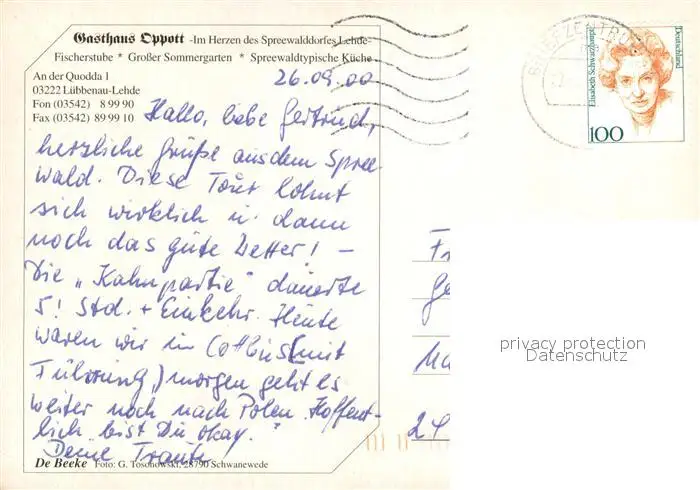 Gasthaus Oppott -Im Herzen des Spreewalddorfes Lehde-
Fischerstube * Großer Sommergarten * Spreewaldtypische Küche
An der Quodda 1
03222 Lübbenau-Lehde
Fon (03542) 8 99 90
Fax (03542) 89 99 10
26.09.00
Hallo, liebe Gertrud,
herzliche Grüße aus dem Spree-
wald. Diese Tour lohnt
sich wirklich u. dann
noch das gute Wetter! –
Die „Kahnpartie" dauerte
5! Std. + Einkehr. Heute
waren wir in Cottbus (mit
Führung) morgen geht es
weiter noch nach Polen. Hoffent-
lich bist Du okay.
Deine Traute
De Beeke Foto: G. Tosonowski, 28790 Schwanewede
BRIEFZENTRUM
Elisabeth Schwarzhaupt
Deutschland
100
Fr
Ge
24
privacy protection
Datenschutz